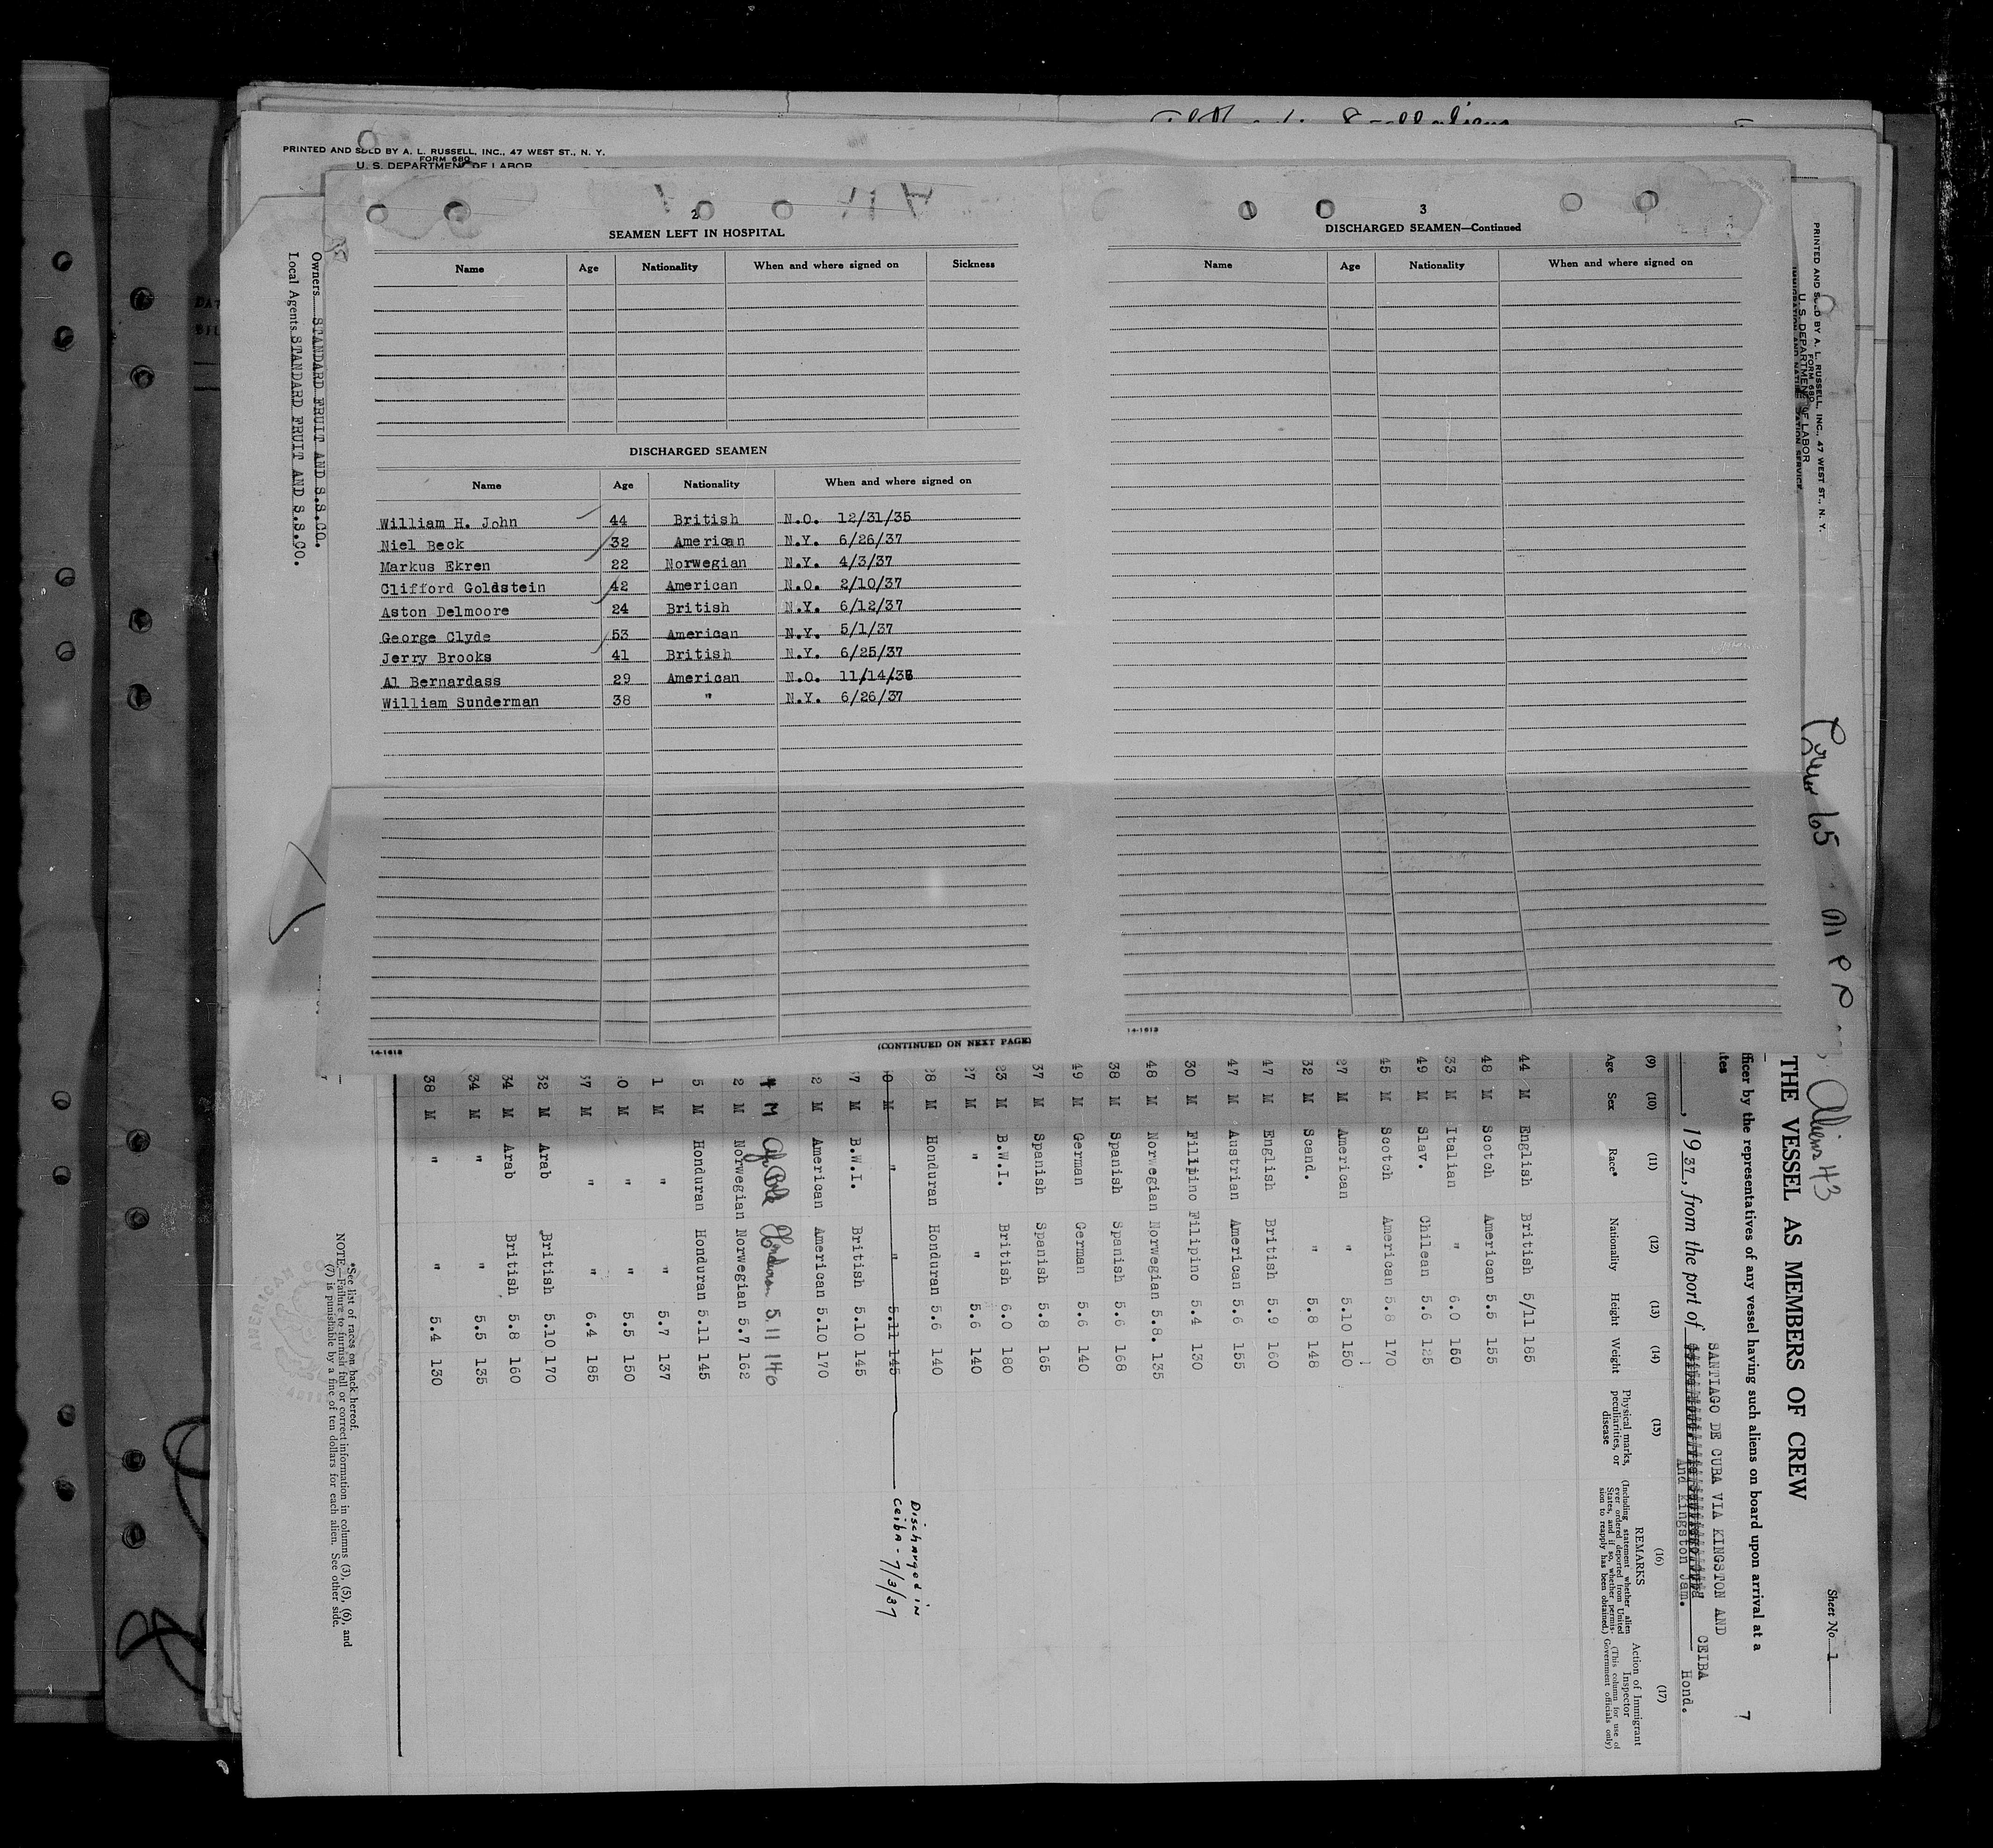 PRINTED AND SOLD BY A. L. RUSSELL, INC., 47 WEST ST., N. Y.
FORM 680
U. S. DEPARTMENT OF LABOR
2
SEAMEN LEFT IN HOSPITAL
Name Age Nationality When and where signed on Sickness
DISCHARGED SEAMEN
Name Age Nationality When and where signed on
William H. John 44 British N.O. 12/31/35
Niel Beck 32 American N.Y. 6/26/37
Markus Ekren 22 Norwegian N.Y. 4/3/37
Clifford Goldstein 42 American N.O. 2/10/37
Aston Delmoore 24 British N.Y. 6/12/37
George Clyde 53 American N.Y. 5/1/37
Jerry Brooks 41 British N.Y. 6/25/37
Al Bernardass 29 American N.O. 11/14/36
William Sunderman 38 " N.Y. 6/26/37
(CONTINUED ON NEXT PAGE)
14-1613
3
DISCHARGED SEAMEN—Continued
Name Age Nationality When and where signed on
14-1613
Owners STANDARD FRUIT AND S.S.CO.
Local Agents STANDARD FRUIT AND S.S.CO.
PRINTED AND SOLD BY A. L. RUSSELL, INC., 47 WEST ST., N. Y.
FORM 680
U. S. DEPARTMENT OF LABOR
Crew 65
Aliens 43
Sheet No. 1
THE VESSEL AS MEMBERS OF CREW
fficer by the representatives of any vessel having such aliens on board upon arrival at a
tes
7
SANTIAGO DE CUBA VIA KINGSTON AND CEIBA Hond.
, 1937, from the port of
And Kingston Jam.
(9) (10) (11) (12) (13) (14) (15) (16) (17)
Age Sex Race* Nationality Height Weight Physical marks, peculiarities, or disease REMARKS (Including statement whether alien ever ordered deported from United States, and if so, whether permission to reapply has been obtained.) Action of Immigrant Inspector (This column for use of Government officials only)
44 M English British 5/11 185
48 M Scotch American 5.5 155
33 M Italian " 6.0 150
49 M Slav. Chilean 5.6 125
45 M Scotch American 5.8 170
27 M American " 5.10 150
32 M Scand. " 5.8 148
47 M English British 5.9 160
47 M Austrian American 5.6 155
30 M Filipino Filipino 5.4 130
48 M Norwegian Norwegian 5.8. 135
38 M Spanish Spanish 5.6 168
49 M German German 5.6 140
37 M Spanish Spanish 5.8 165
23 M B.W.I. British 6.0 180
27 M " " 5.6 140
28 M Honduran Honduran 5.6 140
0 M " " 5.11 145 Discharged in Ceiba - 7/3/37
7 M B.W.I. British 5.10 145
2 M American American 5.10 170
4 M 5.11 140
2 M Norwegian Norwegian 5.7 162
5 M Honduran Honduran 5.11 145
1 M " " 5.7 137
0 M " " 5.5 150
37 M " " 6.4 185
32 M Arab British 5.10 170
34 M Arab British 5.8 160
34 M " " 5.5 135
38 M " " 5.4 130
*See list of races on back hereof.
NOTE.—Failure to furnish full or correct information in columns (3), (5), (6), and
(7) is punishable by a fine of ten dollars for each alien. See other side.